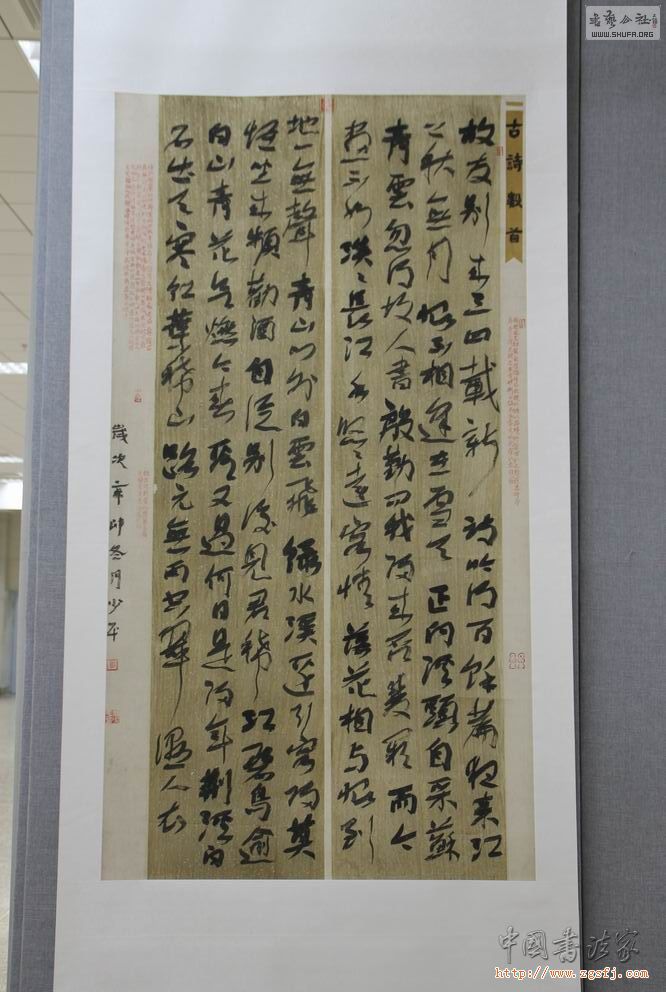 書藝公社
WWW.SHUFA.ORG
古詩數首
故友別來三四載新詩吟得百餘篇夜來江
上秋無月恨不相逢在雪天正向溪頭自采蘇
青雲忽得故人書殷勤問我歸來否雙闕而今
畫不如淡淡長江水悠悠遠客情落花相與恨到
地一無聲青山門外白雲飛綠水溪邊引客歸莫
怪坐來頻勸酒自從別後見君稀江碧鳥逾
白山青花欲燃今春看又過何日是歸年荊溪白
石出天寒紅葉稀山路元無雨空翠濕人衣
歲次辛卯冬月少平
中国書法家
http://www.zgsfj.com